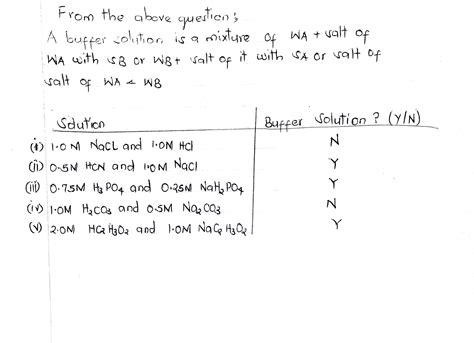 From the above question;
A buffer solution is a mixture of WA + salt of
WA with SB or WB + salt of it with SA or salt of
salt of WA & WB
Solution Buffer Solution? (Y/N)
(i) 1.0 M NaCL and 1.0M HCl N
(ii) 0.5M HCN and 1.0M NaCl Y
(iii) 0.75M H3PO4 and 0.25M NaH2PO4 Y
(iv) 1.0M H2CO3 and 0.5M Na2CO3 N
(v) 2.0M HC2H3O2 and 1.0M NaC2H3O2 Y